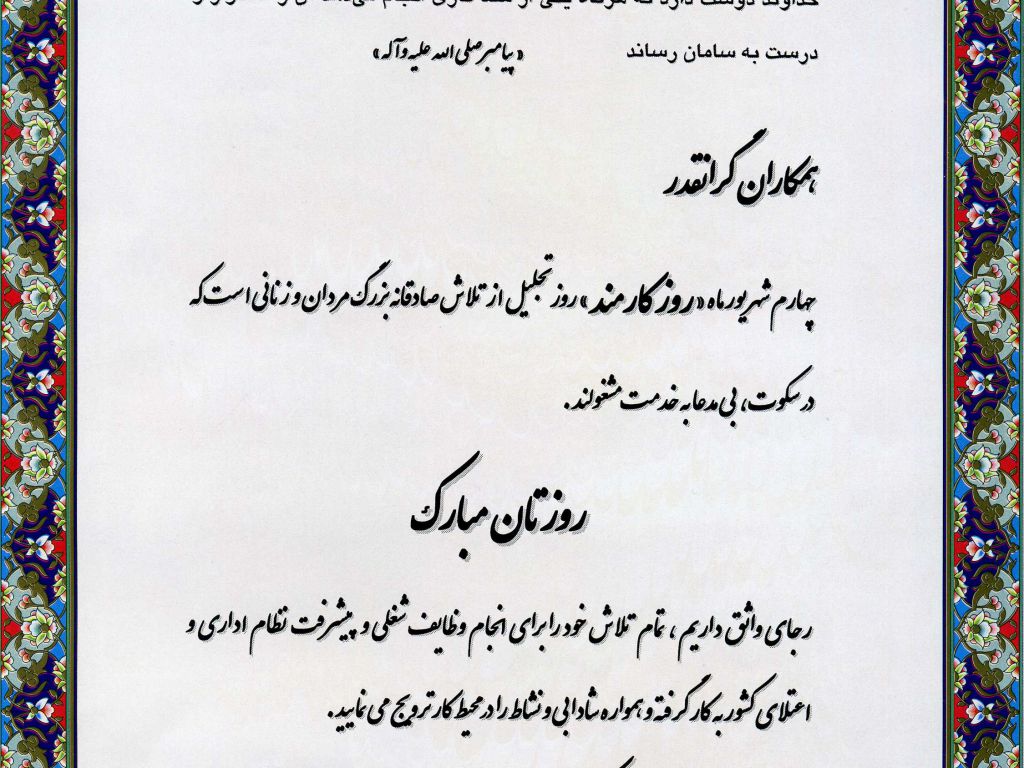 درست به سامان رساند «پیامبر صلی الله علیه و آله»
همکاران گرانقدر
چهارم شهریور ماه «روز کارمند» روز تجلیل از تلاش صادقانه بزرگ مردان و زنانی است که
در سکوت، بی مدعا به خدمت مشغولند.
روزتان مبارک
رجای واثق داریم، تمام تلاش خود را برای انجام وظایف شغلی و پیشرفت نظام اداری و
اعتلای کشور به کار گرفته و همواره شادابی و نشاط را در محیط کار ترویج می نمایید.